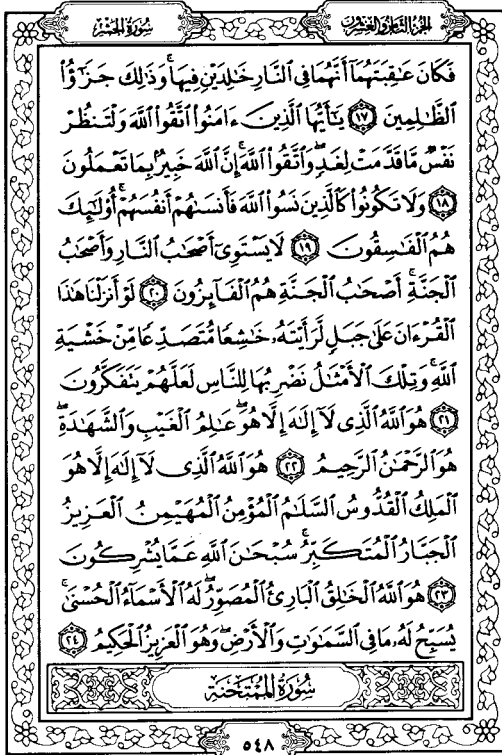 الجزء الثامن والعشرون
سورة الحشر
فَكَانَ عَٰقِبَتَهُمَآ أَنَّهُمَا فِى ٱلنَّارِ خَٰلِدَيْنِ فِيهَا ۚ وَذَٰلِكَ جَزَٰٓؤُا۟
ٱلظَّٰلِمِينَ ١٧ يَٰٓأَيُّهَا ٱلَّذِينَ ءَامَنُوا۟ ٱتَّقُوا۟ ٱللَّهَ وَلْتَنظُرْ
نَفْسٌ مَّا قَدَّمَتْ لِغَدٍ ۖ وَٱتَّقُوا۟ ٱللَّهَ ۚ إِنَّ ٱللَّهَ خَبِيرٌۢ بِمَا تَعْمَلُونَ
١٨ وَلَا تَكُونُوا۟ كَٱلَّذِينَ نَسُوا۟ ٱللَّهَ فَأَنسَىٰهُمْ أَنفُسَهُمْ ۚ أُو۟لَٰٓئِكَ
هُمُ ٱلْفَٰسِقُونَ ١٩ لَا يَسْتَوِىٓ أَصْحَٰبُ ٱلنَّارِ وَأَصْحَٰبُ
ٱلْجَنَّةِ ۚ أَصْحَٰبُ ٱلْجَنَّةِ هُمُ ٱلْفَآئِزُونَ ٢٠ لَوْ أَنزَلْنَا هَٰذَا
ٱلْقُرْءَانَ عَلَىٰ جَبَلٍ لَّرَأَيْتَهُۥ خَٰشِعًا مُّتَصَدِّعًا مِّنْ خَشْيَةِ
ٱللَّهِ ۚ وَتِلْكَ ٱلْأَمْثَٰلُ نَضْرِبُهَا لِلنَّاسِ لَعَلَّهُمْ يَتَفَكَّرُونَ
٢١ هُوَ ٱللَّهُ ٱلَّذِى لَآ إِلَٰهَ إِلَّا هُوَ ۖ عَٰلِمُ ٱلْغَيْبِ وَٱلشَّهَٰدَةِ ۖ
هُوَ ٱلرَّحْمَٰنُ ٱلرَّحِيمُ ٢٢ هُوَ ٱللَّهُ ٱلَّذِى لَآ إِلَٰهَ إِلَّا هُوَ
ٱلْمَلِكُ ٱلْقُدُّوسُ ٱلسَّلَٰمُ ٱلْمُؤْمِنُ ٱلْمُهَيْمِنُ ٱلْعَزِيزُ
ٱلْجَبَّارُ ٱلْمُتَكَبِّرُ ۚ سُبْحَٰنَ ٱللَّهِ عَمَّا يُشْرِكُونَ
٢٣ هُوَ ٱللَّهُ ٱلْخَٰلِقُ ٱلْبَارِئُ ٱلْمُصَوِّرُ ۖ لَهُ ٱلْأَسْمَآءُ ٱلْحُسْنَىٰ ۚ
يُسَبِّحُ لَهُۥ مَا فِى ٱلسَّمَٰوَٰتِ وَٱلْأَرْضِ ۖ وَهُوَ ٱلْعَزِيزُ ٱلْحَكِيمُ ٢٤
سُورَةُ المُمْتَحِنَةِ
٥٤٨